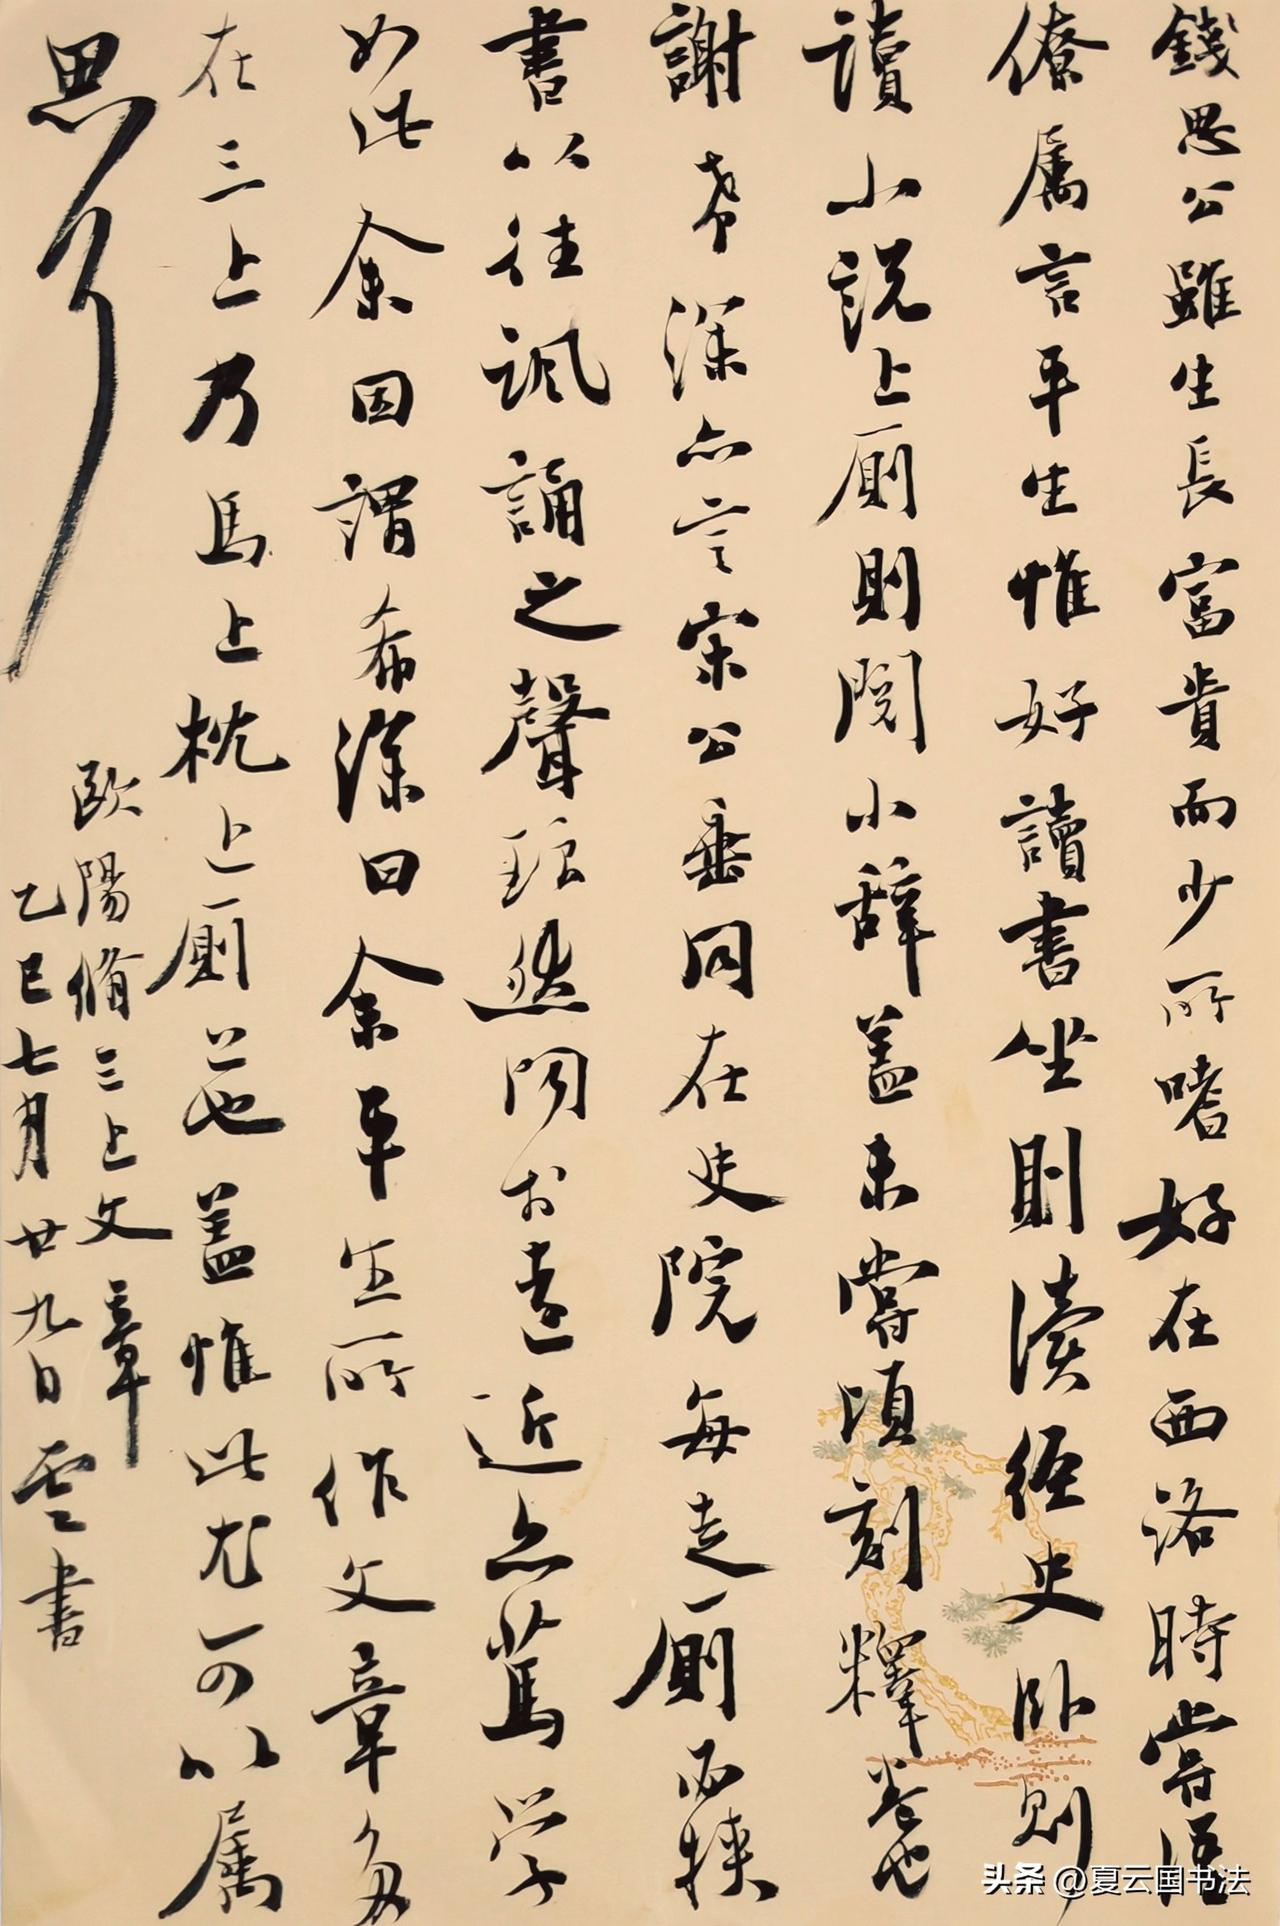 錢思公雖生長富貴而少所嗜好在西洛時嘗語
僚屬言平生惟好讀書坐則讀經史卧則
讀小説上厠則閱小辞盖未嘗頃刻釋卷也
謝希深亦言宋公垂同在史院每走厠必挾
書以往諷誦之聲琅然聞於遠近亦篤學
如此余因謂希深曰余平生所作文章多
在三上乃馬上枕上厠上也盖惟此尤可以属
思尔
歐陽脩三上文章
乙巳七月廿九日雲書
头条 @夏云国书法